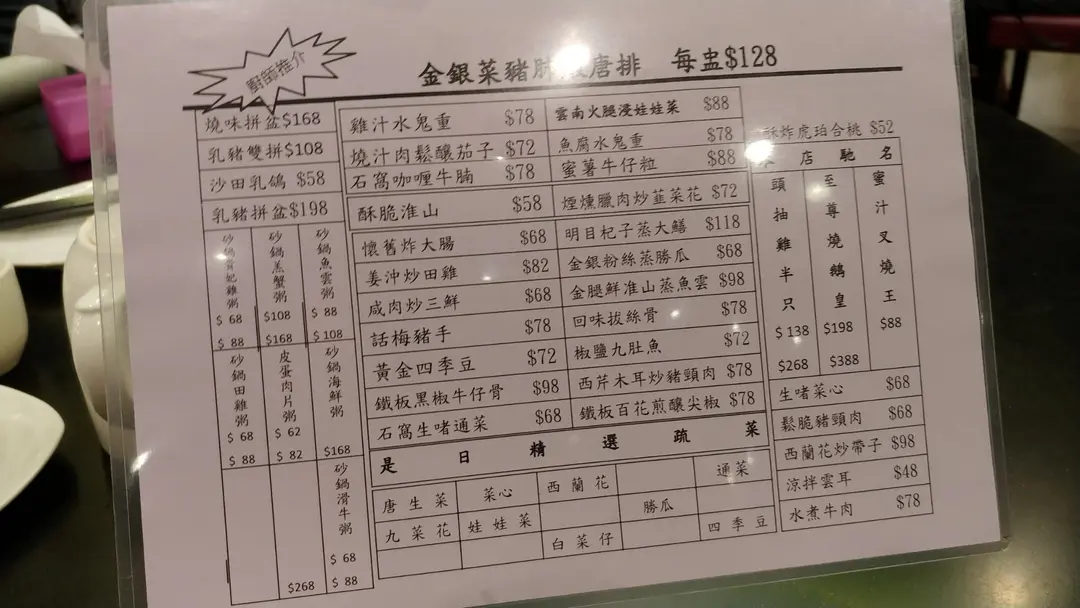 廚師推介
金銀菜豬肺 唐排 每盅$128
燒味拼盆$168
乳豬雙拼$108
沙田乳鴿 $58
乳豬拼盆$198
雞汁水鬼重 $78
燒汁肉鬆釀茄子 $72
石窩咖喱牛腩 $78
酥脆淮山 $58
懷舊炸大腸 $68
姜沖炒田雞 $82
咸肉炒三鮮 $68
話梅豬手 $78
黃金四季豆 $72
鐵板黑椒牛仔骨 $98
石窩生啫通菜 $68
雲南火腿浸娃娃菜 $88
魚腐水鬼重 $78
蜜薯牛仔粒 $88
煙燻臘肉炒韮菜花 $72
明目杞子蒸大鱔 $118
金銀粉絲蒸勝瓜 $68
金腿鮮淮山蒸魚雲 $98
回味拔絲骨 $78
椒鹽九肚魚 $72
西芹木耳炒豬頸肉 $78
鐵板百花煎釀尖椒 $78
炸虎珀合桃 $52
店馳名
頭抽雞半只 $138 $268
至尊燒鵝皇 $198 $388
蜜汁叉燒王 $88
生啫菜心 $68
鬆脆豬頸肉 $68
西蘭花炒帶子 $98
涼拌雲耳 $48
水煮牛肉 $78
砂鍋 妃雞粥 $68 $88
砂鍋羔蟹粥 $108 $168
砂鍋魚雲粥 $88 $108
砂鍋田雞粥 $68 $88
皮蛋肉片粥 $62 $82
砂鍋海鮮粥 $168
$268
砂鍋滑牛粥 $68 $88
是日精選疏菜
唐生菜 菜心 西蘭花 通菜
九菜花 娃娃菜 勝瓜
白菜仔 四季豆